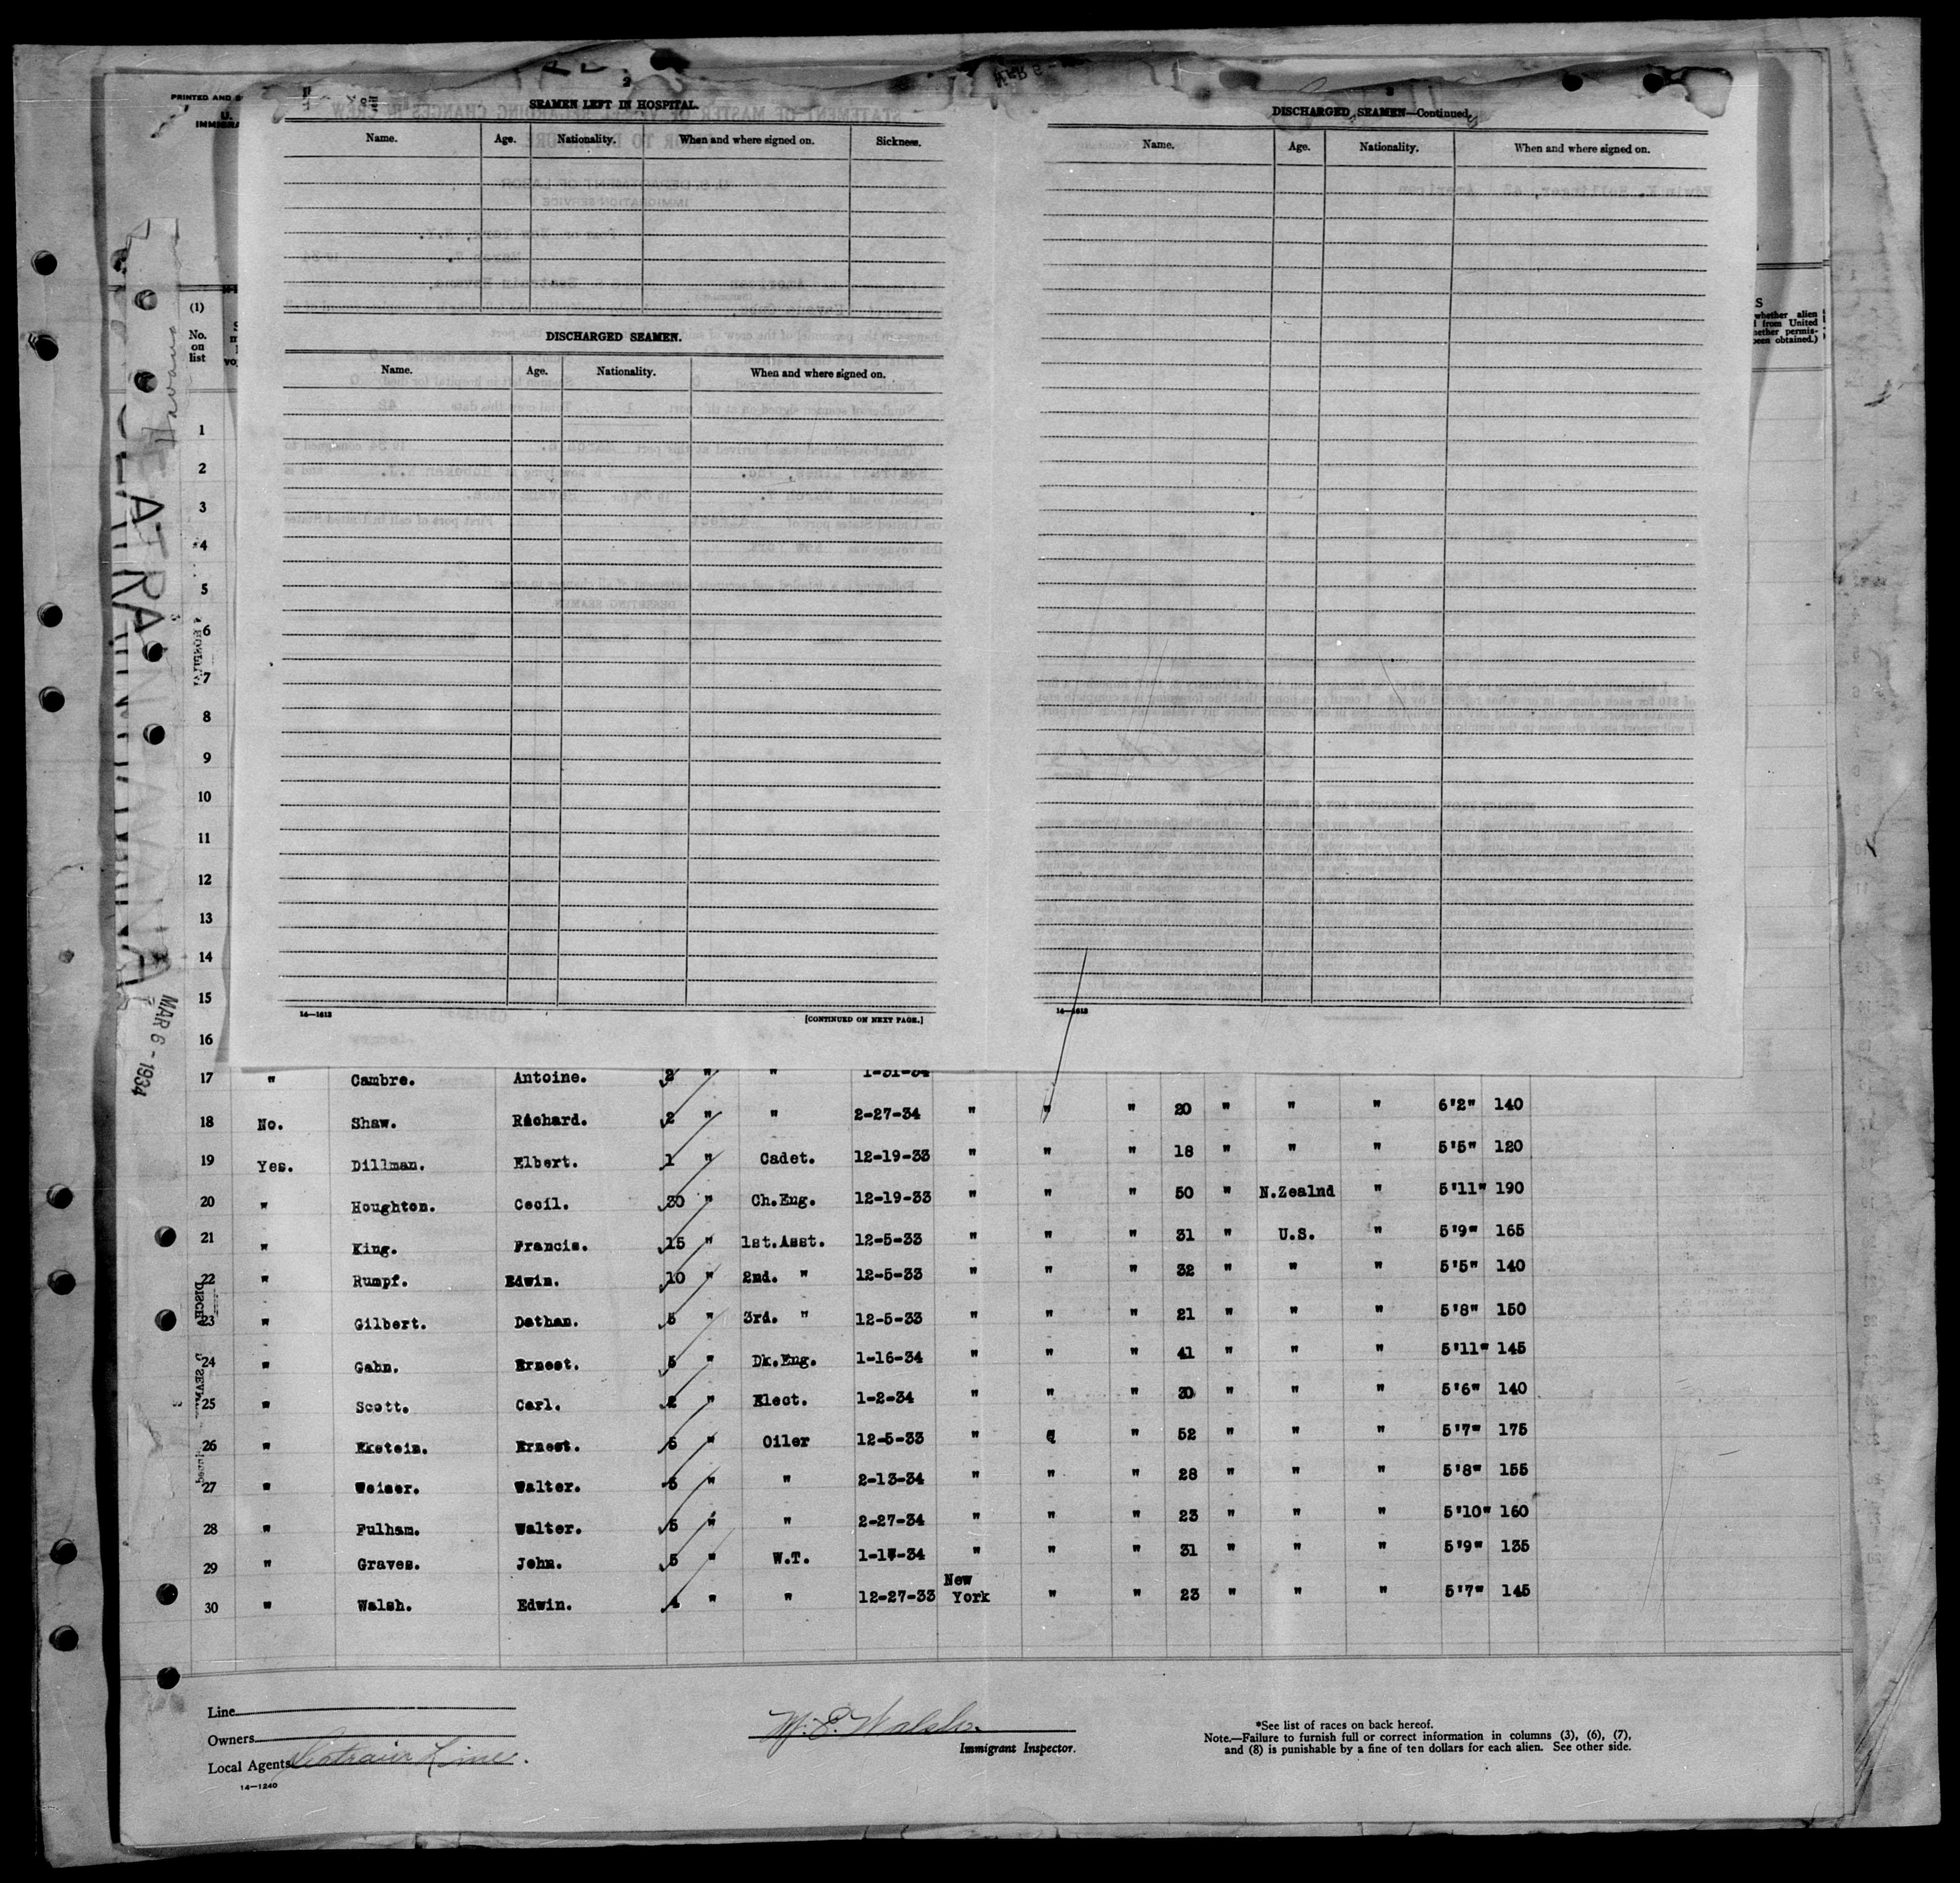 PRINTED AND
U.
IMMIGRA
2
SEAMEN LEFT IN HOSPITAL.
Name. Age. Nationality. When and where signed on. Sickness.
DISCHARGED SEAMEN.
Name. Age. Nationality. When and where signed on.
14—1613
[CONTINUED ON NEXT PAGE.]
3
DISCHARGED SEAMEN—Continued.
Name. Age. Nationality. When and where signed on.
14—1613
S
whether alien
from United
whether permis-
been obtained.)
Havana
SEATRAIN HAVANA
MAR 6 - 1934
(1)
No.
on
list
1
2
3
4
5
6
7
8
9
10
11
12
13
14
15
16
17 " Cambre. Antoine. 2 " " 1-31-34
18 No. Shaw. Richard. 2 " " 2-27-34 " " " 20 " " " 6'2" 140
19 Yes. Dillman. Elbert. 1 " Cadet. 12-19-33 " " " 18 " " " 5'5" 120
20 " Houghton. Cecil. 30 " Ch.Eng. 12-19-33 " " " 50 " N.Zealnd " 5'11" 190
21 " King. Francis. 15 " 1st.Asst. 12-5-33 " " " 31 " U.S. " 5'9" 165
22 " Rumpf. Edwin. 10 " 2nd. " 12-5-33 " " " 32 " " " 5'5" 140
23 " Gilbert. Dathan. 5 " 3rd. " 12-5-33 " " " 21 " " " 5'8" 150
24 " Gahn. Ernest. 5 " Dk.Eng. 1-16-34 " " " 41 " " " 5'11" 145
25 " Scott. Carl. 2 " Elect. 1-2-34 " " " 30 " " " 5'6" 140
26 " Ekstein. Ernest. 6 " Oiler 12-5-33 " " 52 " " " 5'7" 175
27 " Weiser. Walter. 5 " " 2-13-34 " " " 28 " " " 5'8" 155
28 " Fulham. Walter. 5 " " 2-27-34 " " " 23 " " " 5'10" 160
29 " Graves. John. 5 " W.T. 1-17-34 " " " 31 " " " 5'9" 135
30 " Walsh. Edwin. 4 " " 12-27-33 New York " " 23 " " " 5'7" 145
Line
Owners
Local Agents Seatrain Line.
14—1240
W. E. Walsh
Immigrant Inspector.
*See list of races on back hereof.
Note.—Failure to furnish full or correct information in columns (3), (6), (7),
and (8) is punishable by a fine of ten dollars for each alien. See other side.